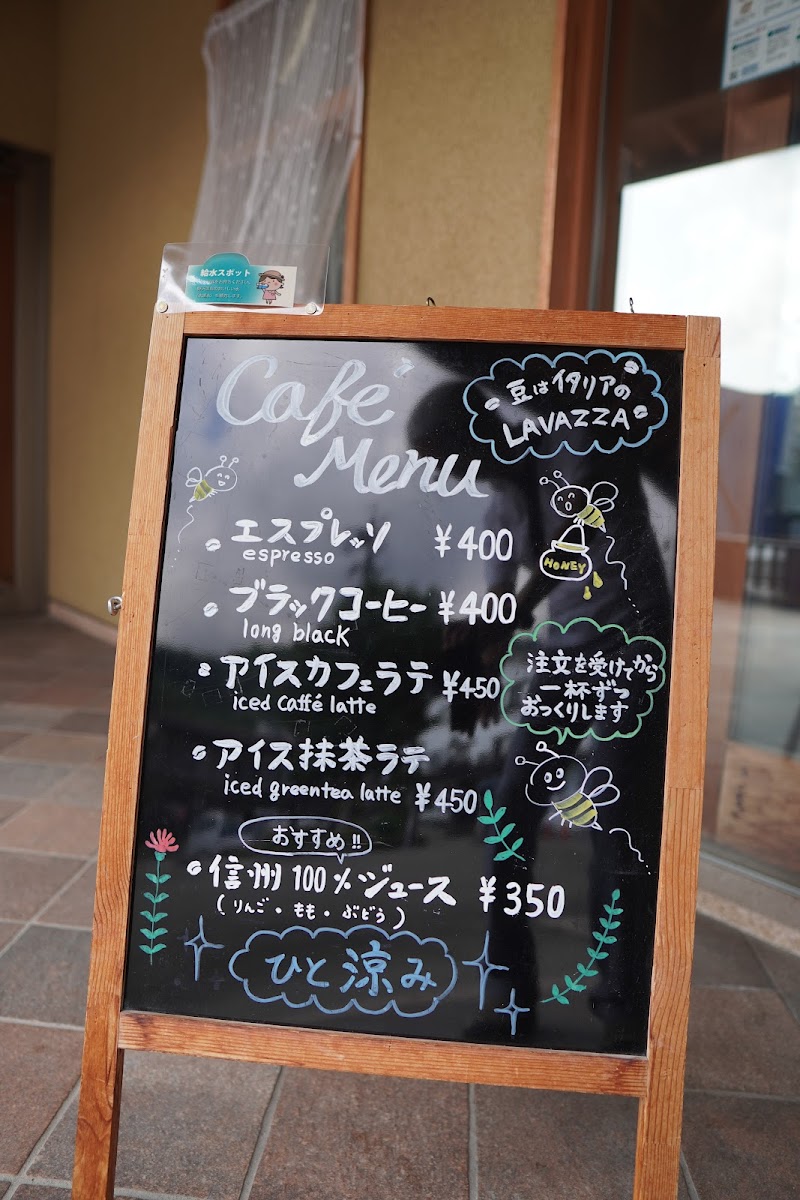 給水スポット
Café
Menu
豆はイタリアの
LAVAZZA
エスプレッソ ¥400
espresso
HONEY
ブラックコーヒー ¥400
long black
アイスカフェラテ ¥450
iced Caffé latte
注文を受けてから
一杯ずつ
おつくりします
アイス抹茶ラテ
iced greentea latte ¥450
おすすめ!!
信州100%ジュース ¥350
(りんご・もも・ぶどう)
ひと涼み